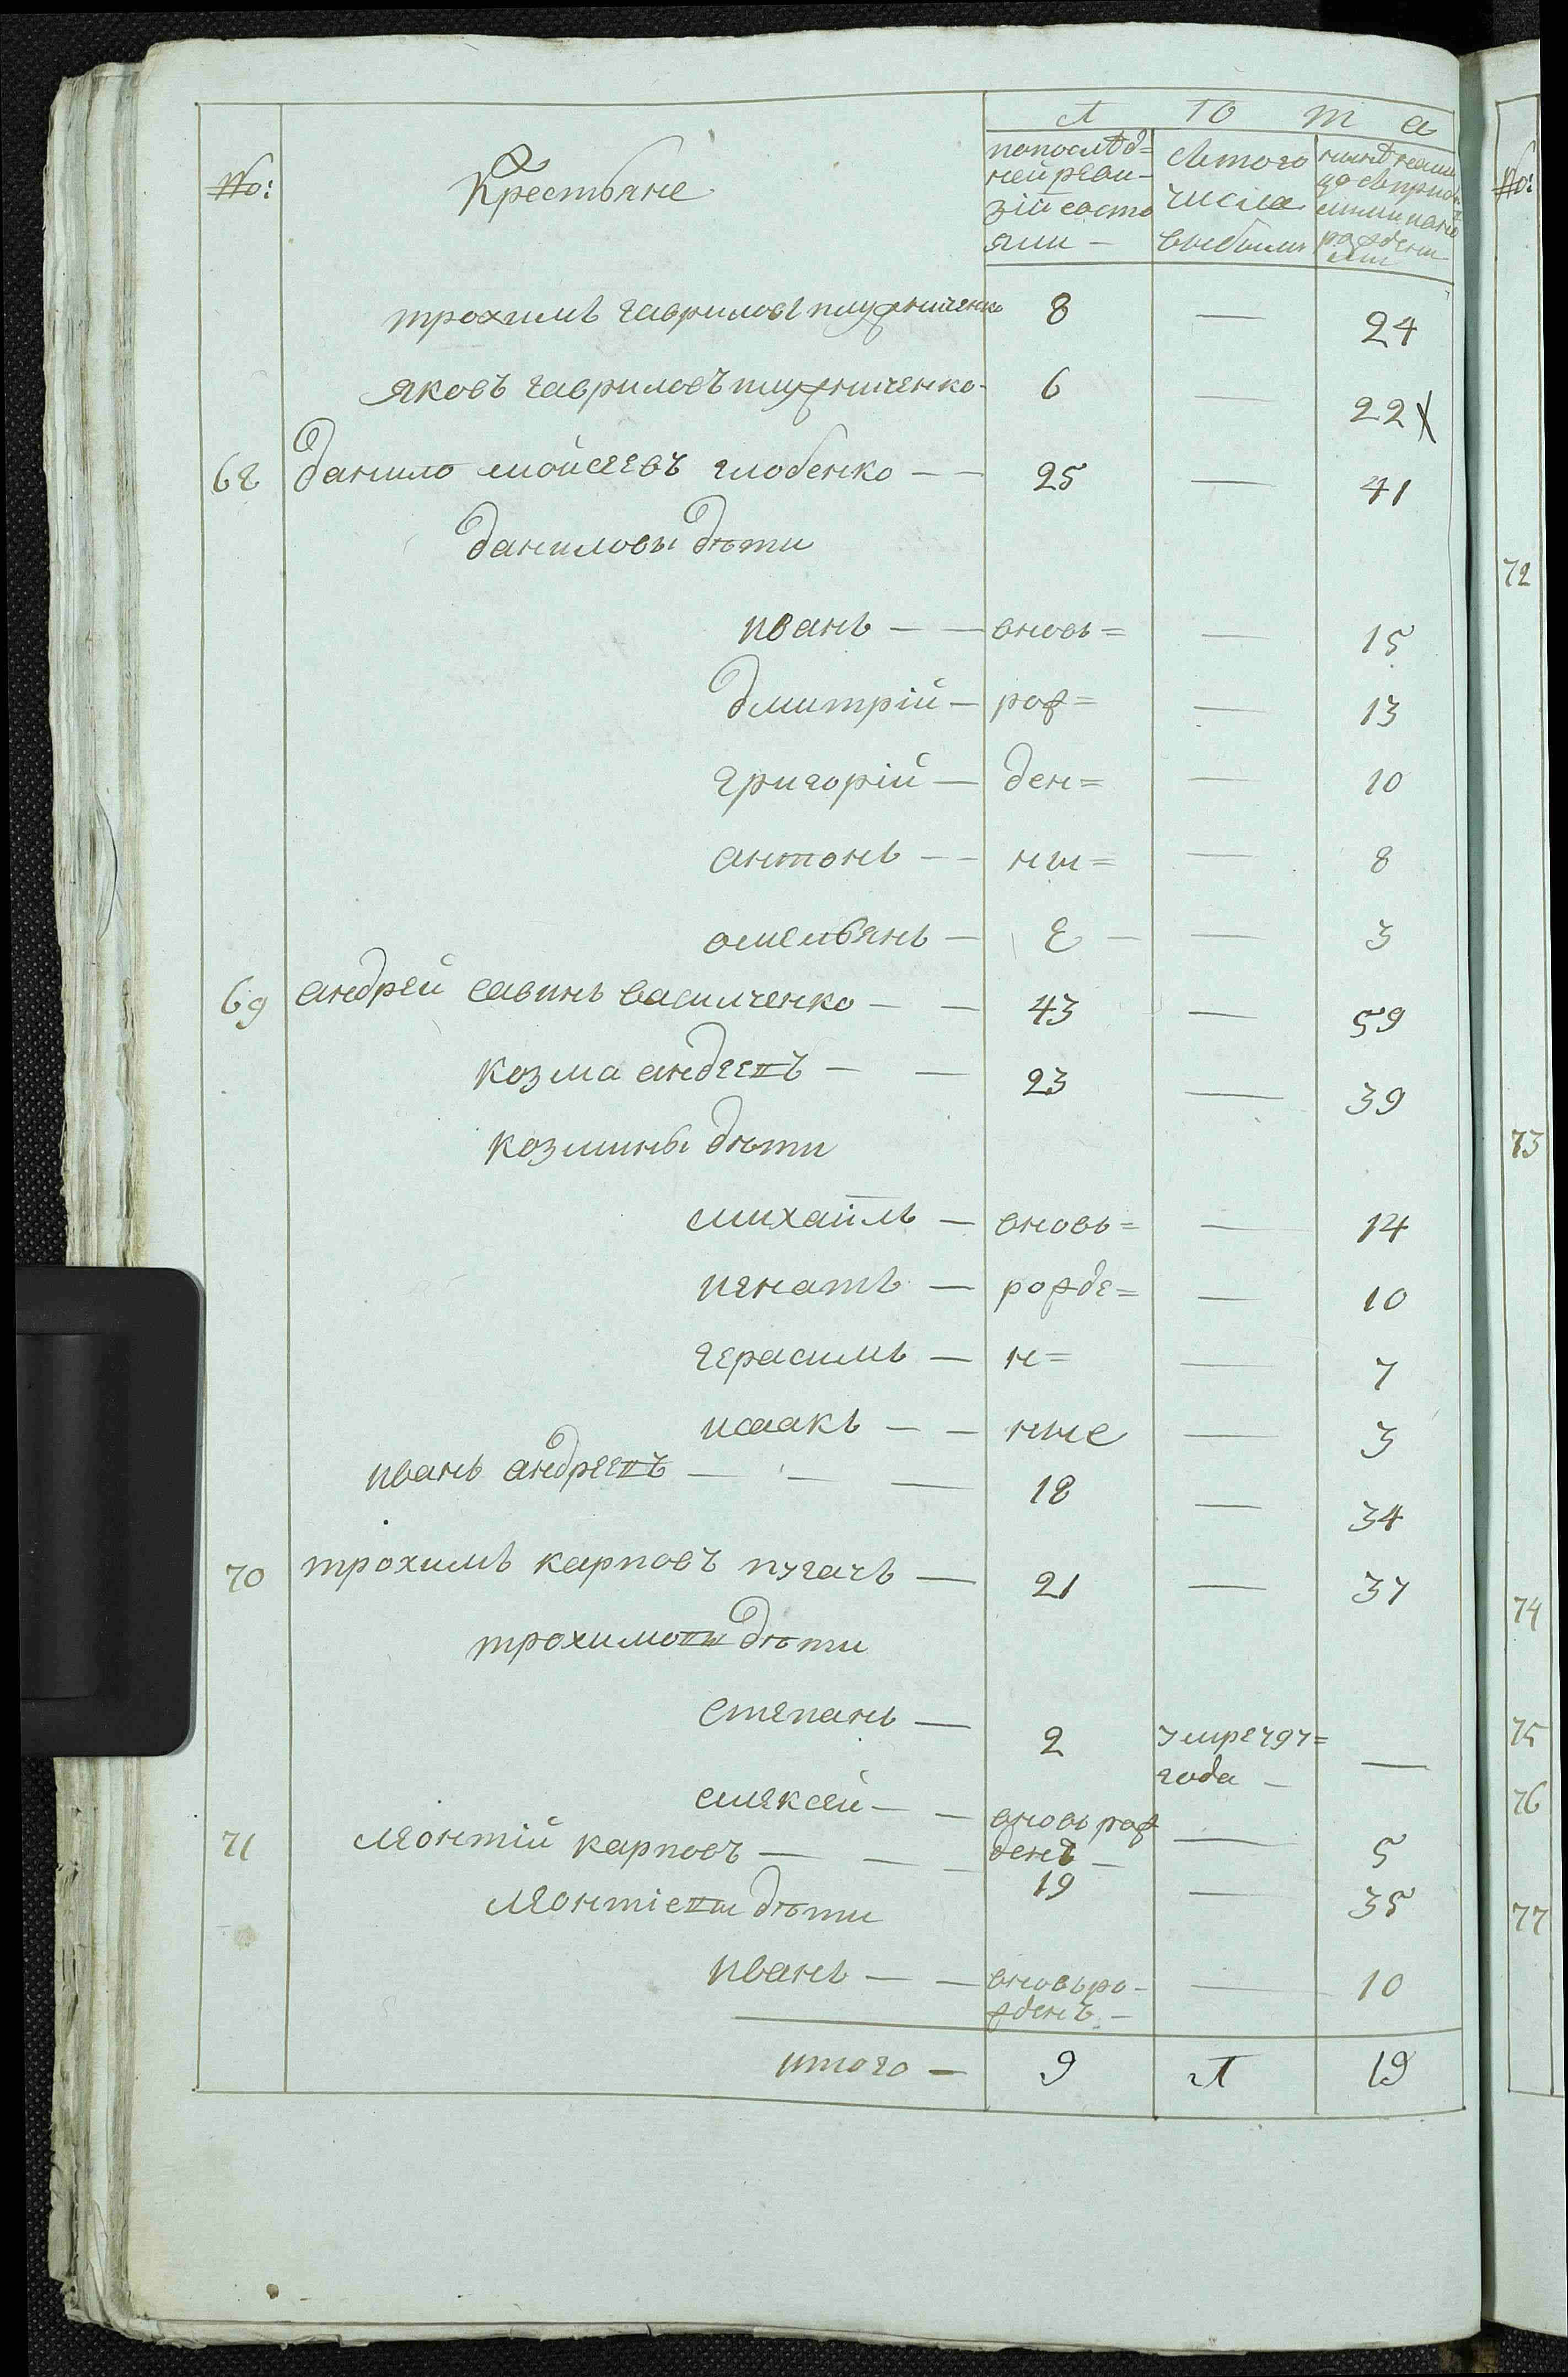 Л ю т а
№: Крестьяне по последней ревизіи состояли — съ того числа выбыли ныне налицо съ прибылыми и нарожденными
трохимъ гавриловъ плужниченко 8 — 24
яковъ гавриловъ плужниченко - 6 — 22
68 данило мойсеевъ глобенко — — 25 — 41
даниловы дѣти
иванъ — — вновь= — 15
дмитрій — рож= — 13
григорій — ден= — 10
антонъ — — ны= — 8
омельянъ — Е — — 3
69 андрей савинъ василченко — — 43 — 59
козма андреевъ — — 23 — 39
козмины дѣти
михайлъ — вновь= — 14
игнатъ — рожде= — 10
герасимъ — н= — 7
исаакъ — — ные — 3
иванъ андреевъ — — — 18 — 34
70 трохимъ карповъ пугачъ — 21 — 37
трохимовы дѣти
степанъ — 2 умре 797= года — —
алексѣй — — вновь рожденъ — — 5
71 леонтій карповъ — — — 19 — 35
леонтіевы дѣти
иванъ — — вновь рожденъ — — 10
итого — 9 1 19
№:
72
73
74
75
76
77